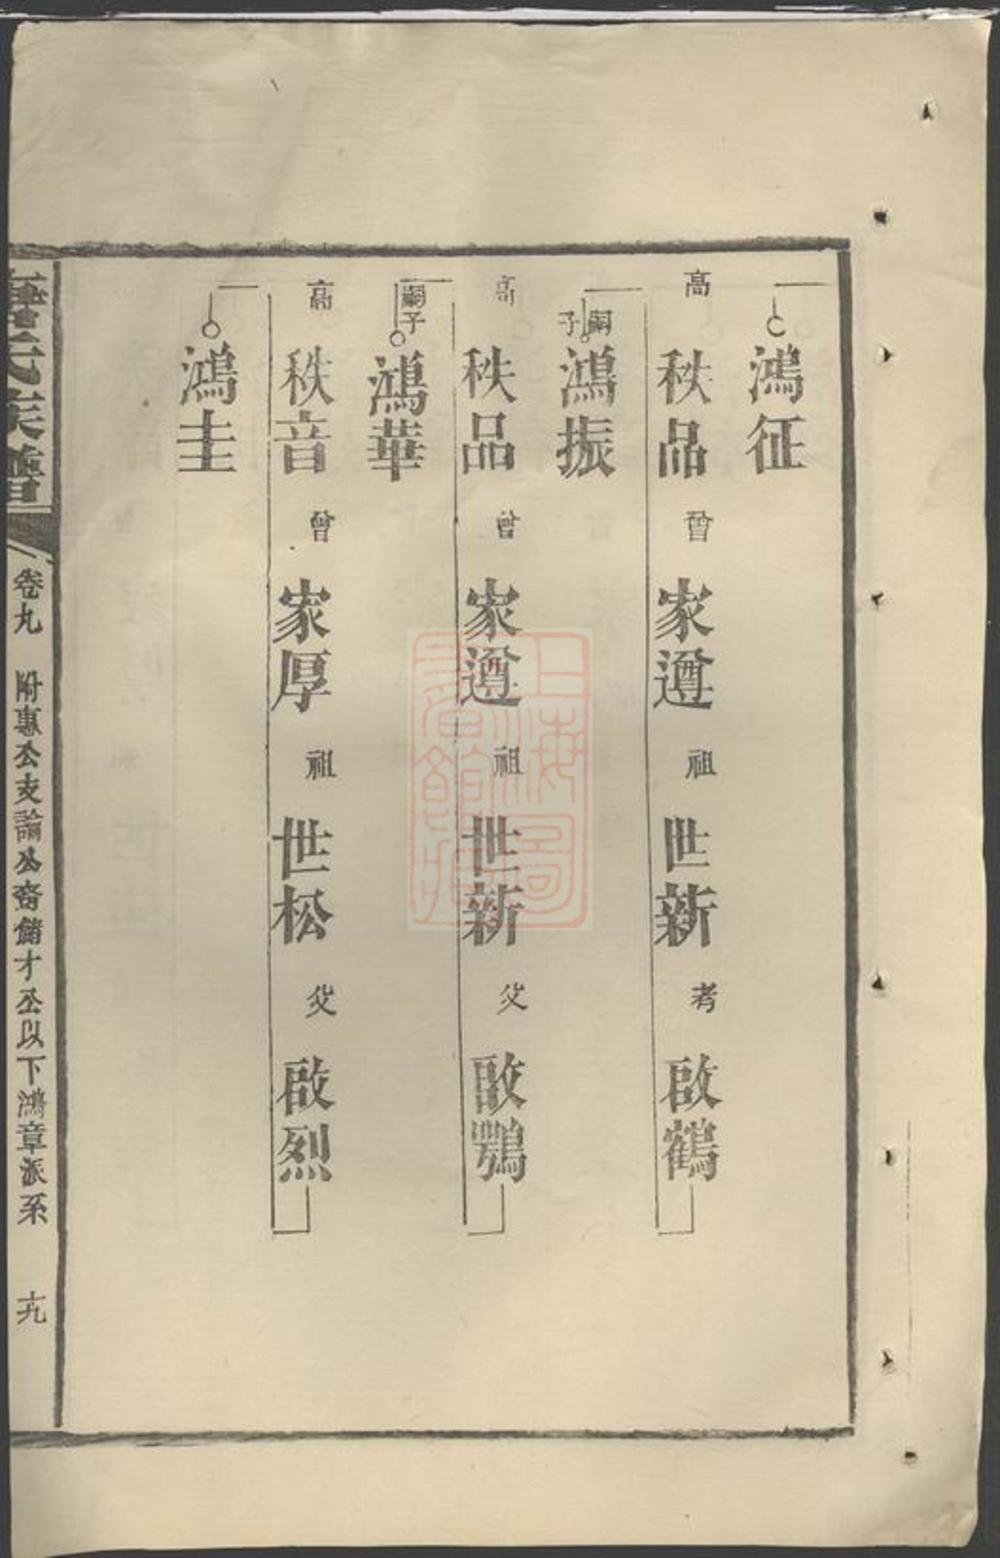 鴻征
高 秩品 曾 家遵 祖 世新 考 啟鶴
嗣子 鴻振
高 秩品 曾 家遵 祖 世新 父 啟鶚
嗣子 鴻華
高 秩音 曾 家厚 祖 世松 父 啟烈
鴻圭
氏族譜
卷九 附專公支諭公裔儲才公以下鴻章派系 十九
上海圖書館藏